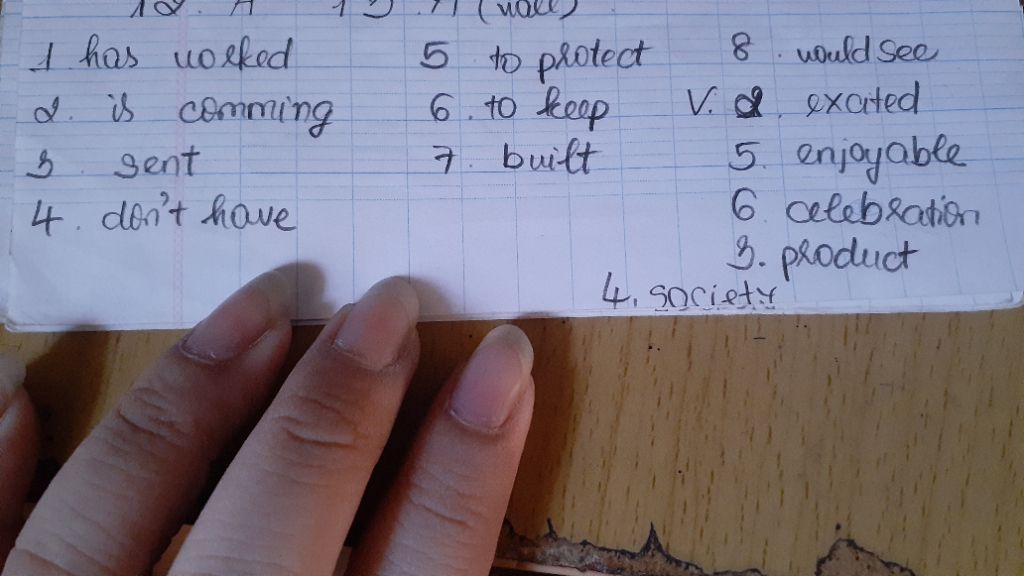 12. A 13. A (
1 has worked
2. is comming
3. sent
4. don't have
5 to protect
6. to keep
7. built
8. would see
V. 2. excited
5. enjoyable
6. celebration
3. product
4. society